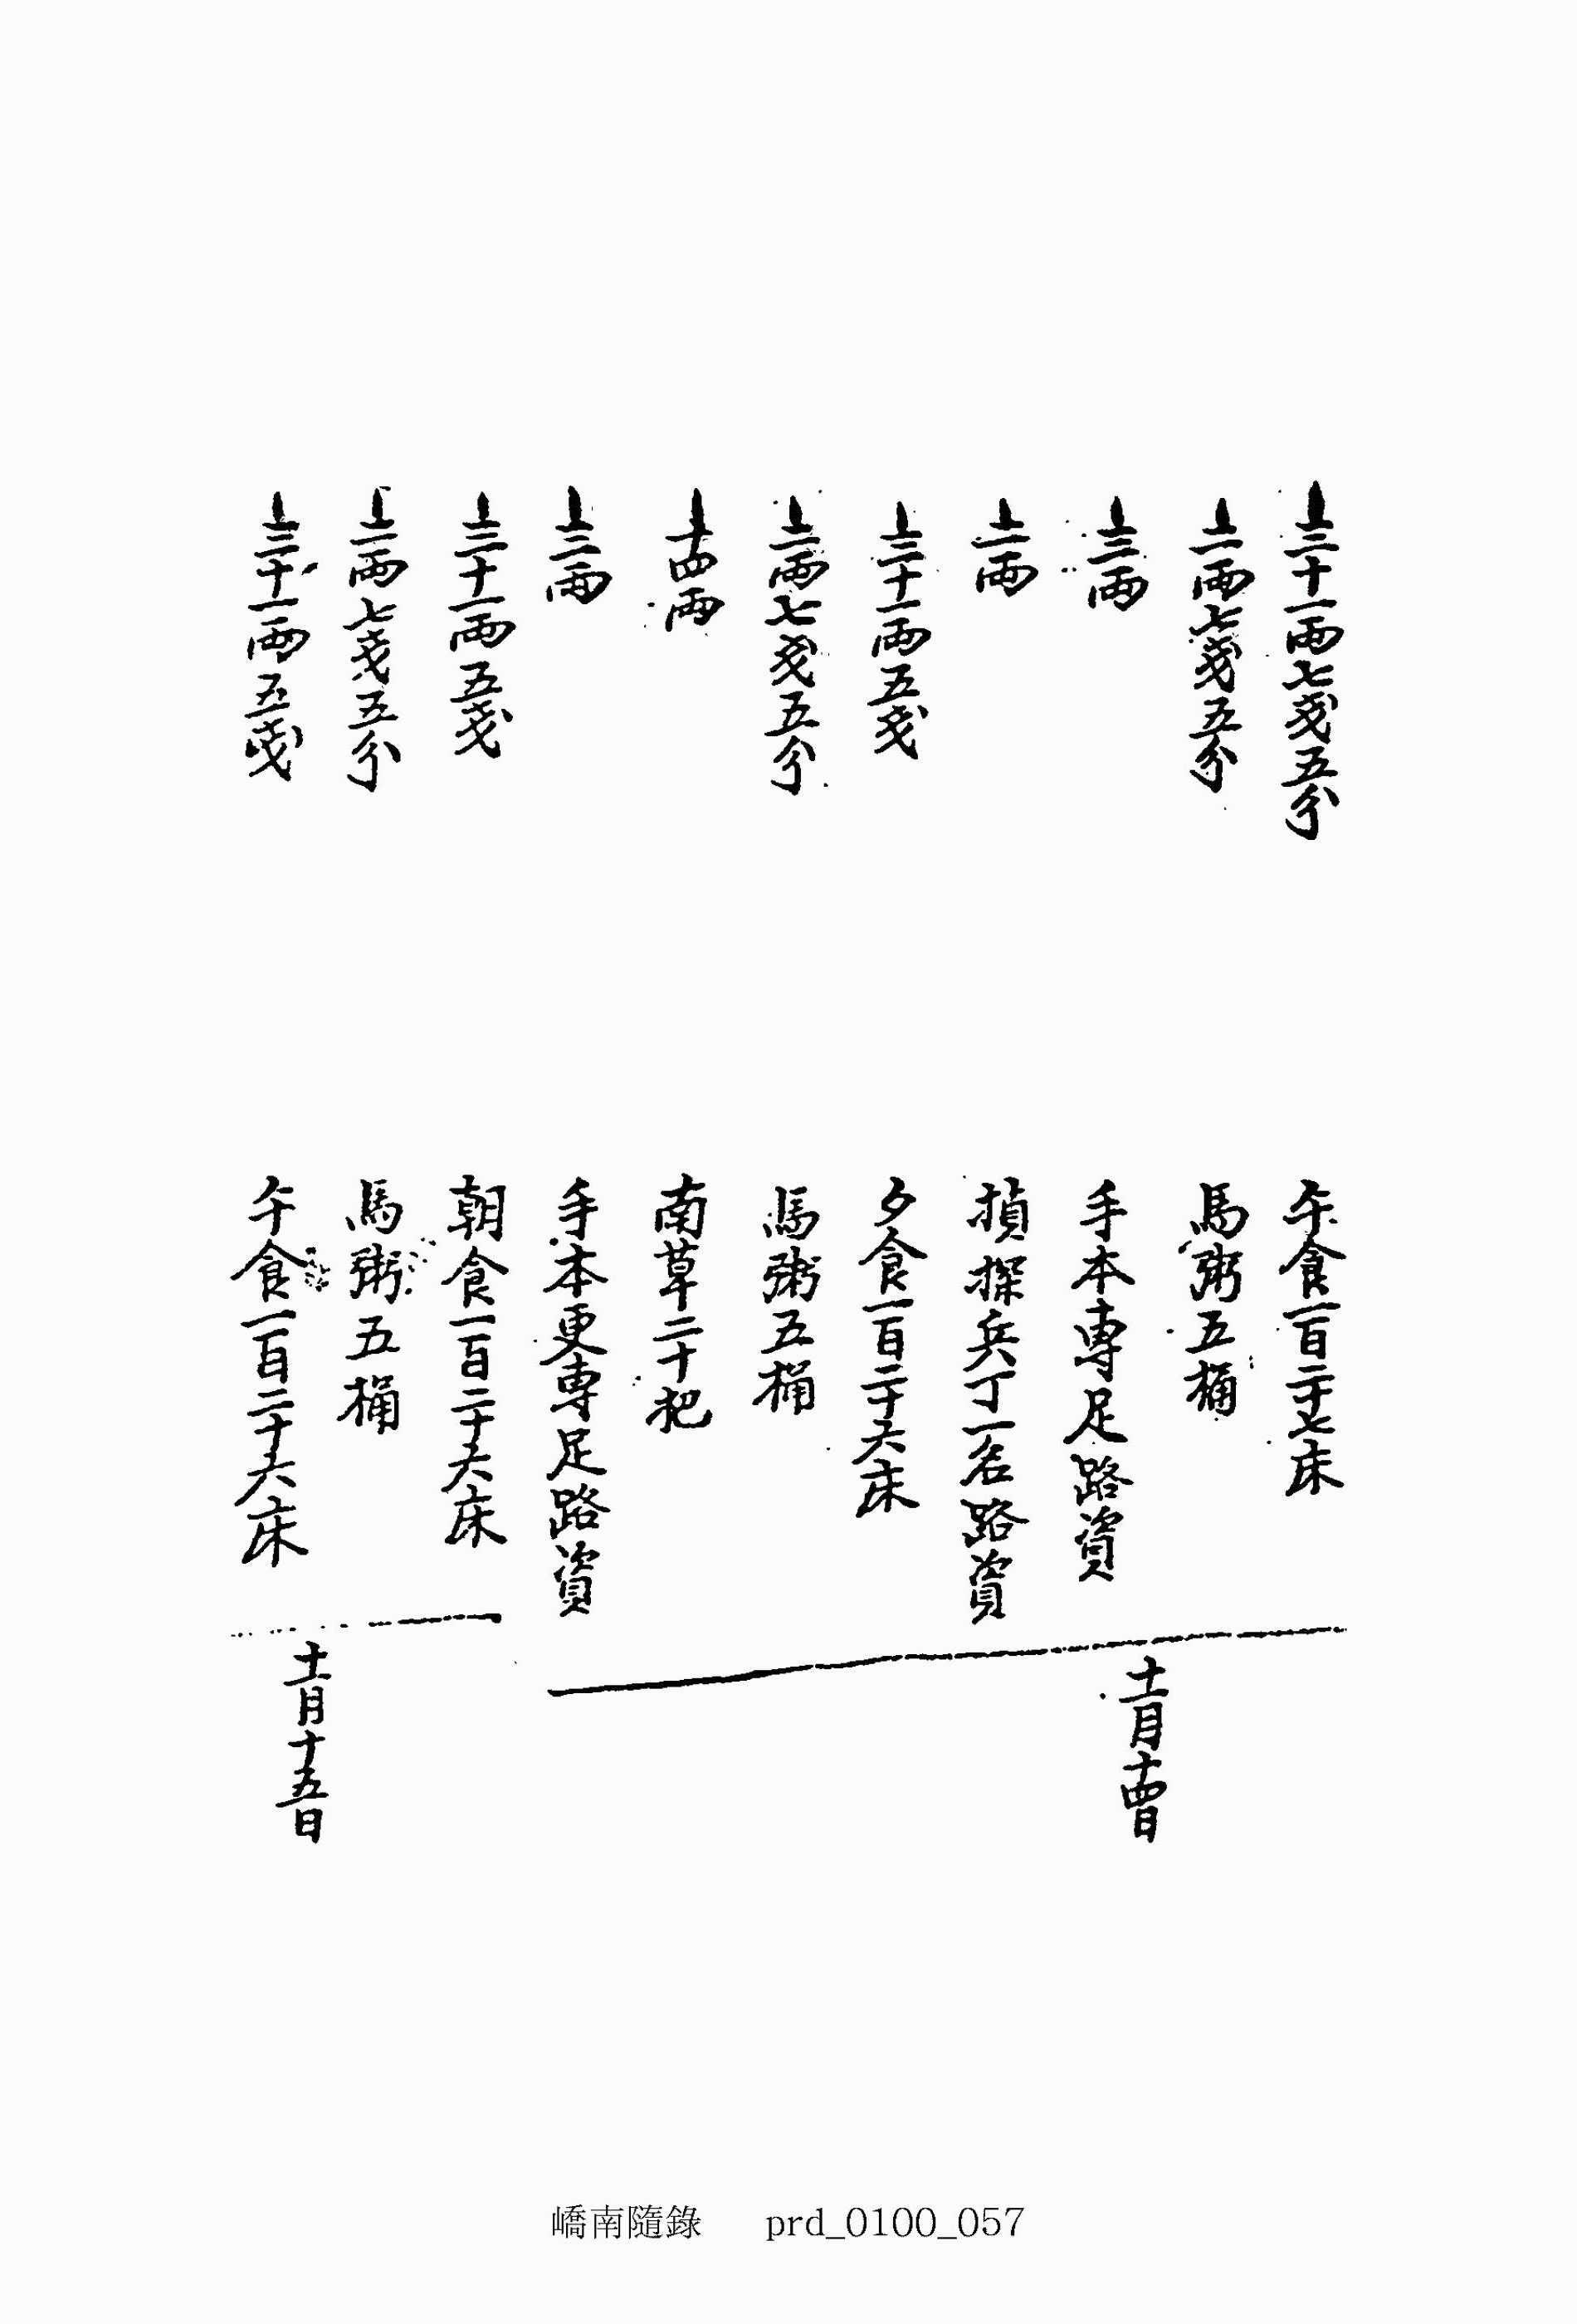 上三十一兩七戔五分
午食一百二十七床
上一兩七戔五分
馬粥五桶
上三兩
手本專足路資
上一兩
揁探兵丁一名路資
上三十一兩五戔
夕食一百二十六床
上一兩七戔五分
馬粥五桶
上十四兩
南草二十把
上三兩
手本更專足路資
十一月十四日
上三十一兩五戔
朝食一百二十六床
上一兩七戔五分
馬粥五桶
上三十一兩五戔
午食一百二十六床
十一月十五日
嶠南隨錄 prd_0100_057